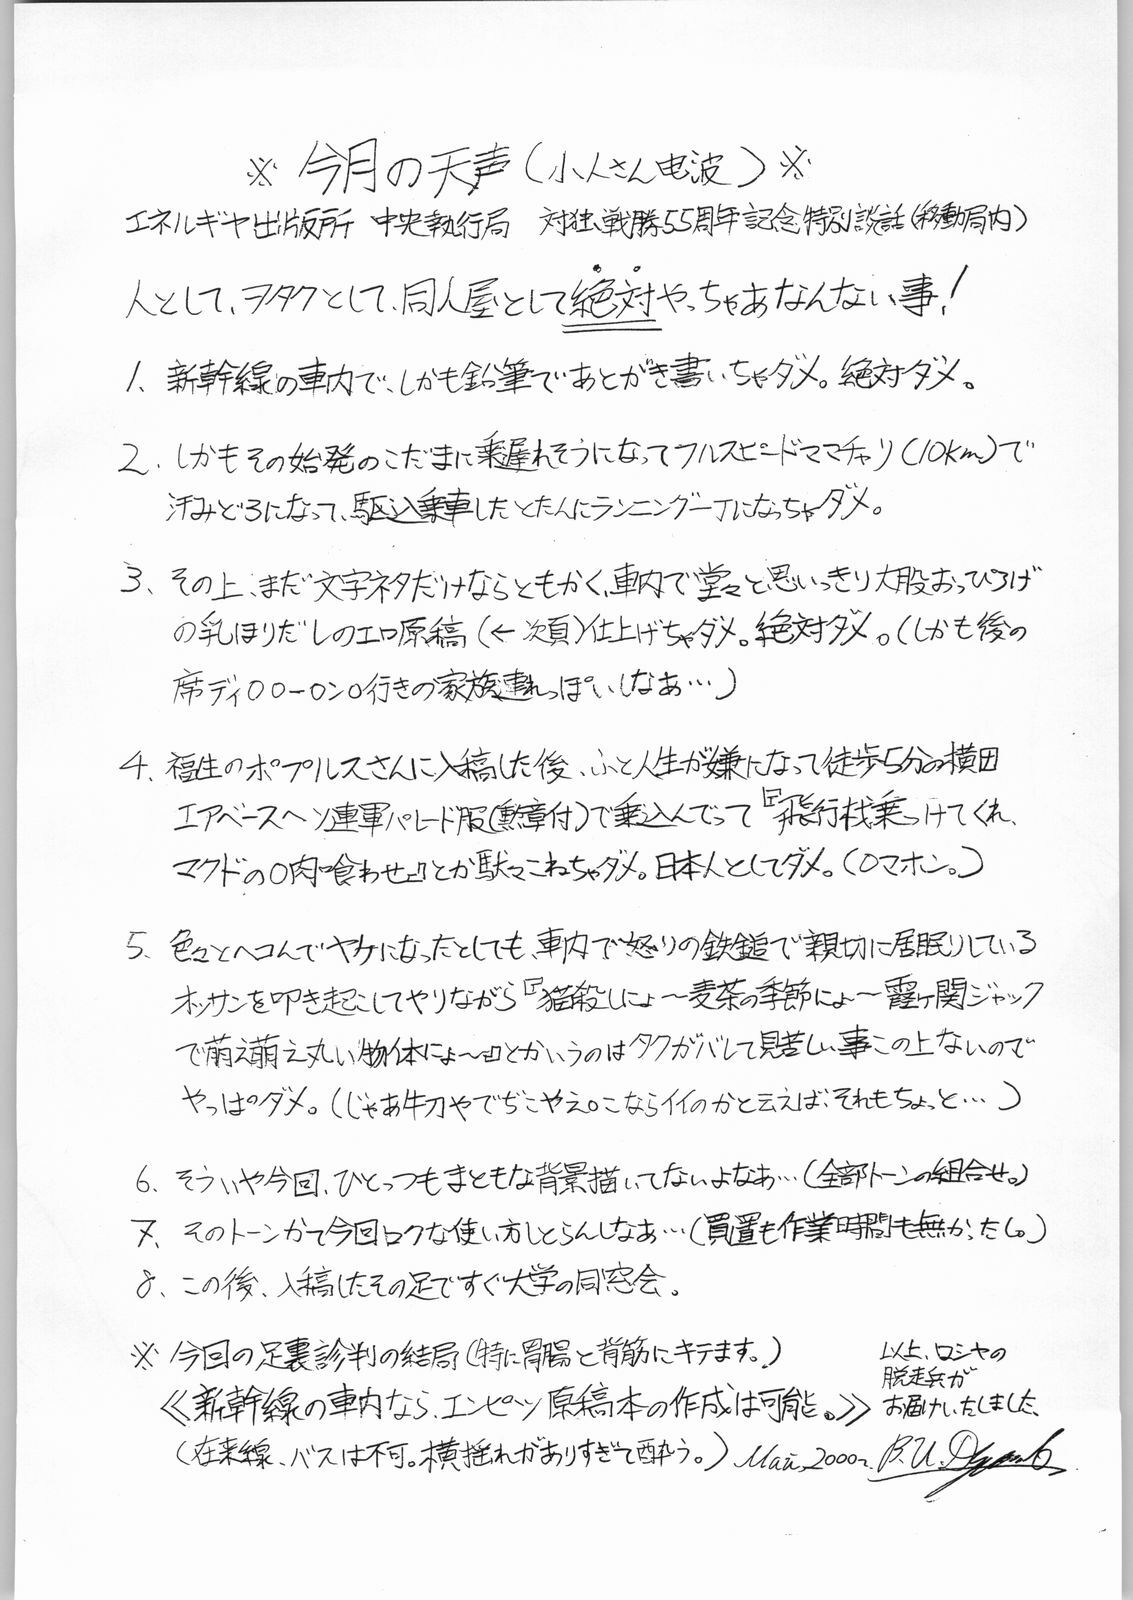 ※ 今月の天声(小人さん电波) ※
エネルギヤ出版所 中央執行局 対独戦勝55周年記念特別談話(移動局内)
人として、ヲタクとして、同人屋として絶対やっちゃあなんない事!
1、新幹線の車内で、しかも鉛筆であとがき書いちゃダメ。絶対ダメ。
2、しかもその始発のこだまに乗遅れそうになってフルスピードママチャリ(10km)で
汗みどろになって、駆込乗車したとたんにランニング一丁になっちゃダメ。
3、その上、まだ文字ネタだけならともかく、車内で堂々と思いっきり大股おっぴろげ
の乳ほりだしのエロ原稿(←次頁)仕上げちゃダメ。絶対ダメ。(しかも後の
席ディ〇〇ー〇ン〇行きの家族連れっぽいしなぁ…)
4、福生のポプルスさんに入稿した後、ふと人生が嫌になって徒歩5分の横田
エアベースへソ連軍パレード服(勲章付)で乗込んでって『飛行機乗っけてくれ、
マクドの〇肉喰わせ』とか駄々こねちゃダメ。日本人としてダメ。(〇マホン。)
5、色々とヘコんでヤケになったとしても、車内で怒りの鉄鎚で親切に居眠りしている
オッサンを叩き起こしてやりながら『猫殺しにょ〜麦茶の季節にょ〜霞ヶ関ジャック
で萌え萌え丸い物体にょ〜』とかいうのはタクがバレて見苦しい事この上ないので
やっぱダメ。(じゃあ牛刀やでぢこやえ〇こならイイのかと云えば、それもちょっと…)
6、そういや今回、ひとっつもまともな背景描いてないよなぁ…(全部トーンの組合せ。)
7、そのトーンかて今回ロクな使い方しとらんしなぁ…(買置も作業時間も無かったし。)
8、この後、入稿したその足ですぐ大学の同窓会。
※ 今回の足裏診判の結局(特に胃腸と背筋にキテます。)
≪新幹線の車内なら、エンピツ原稿本の作成は可能。≫
(在来線、バスは不可。横揺れがありすぎて酔う。)
以上、ロシヤの
脱走兵が
お届けいたしました、
Май, 2000г.